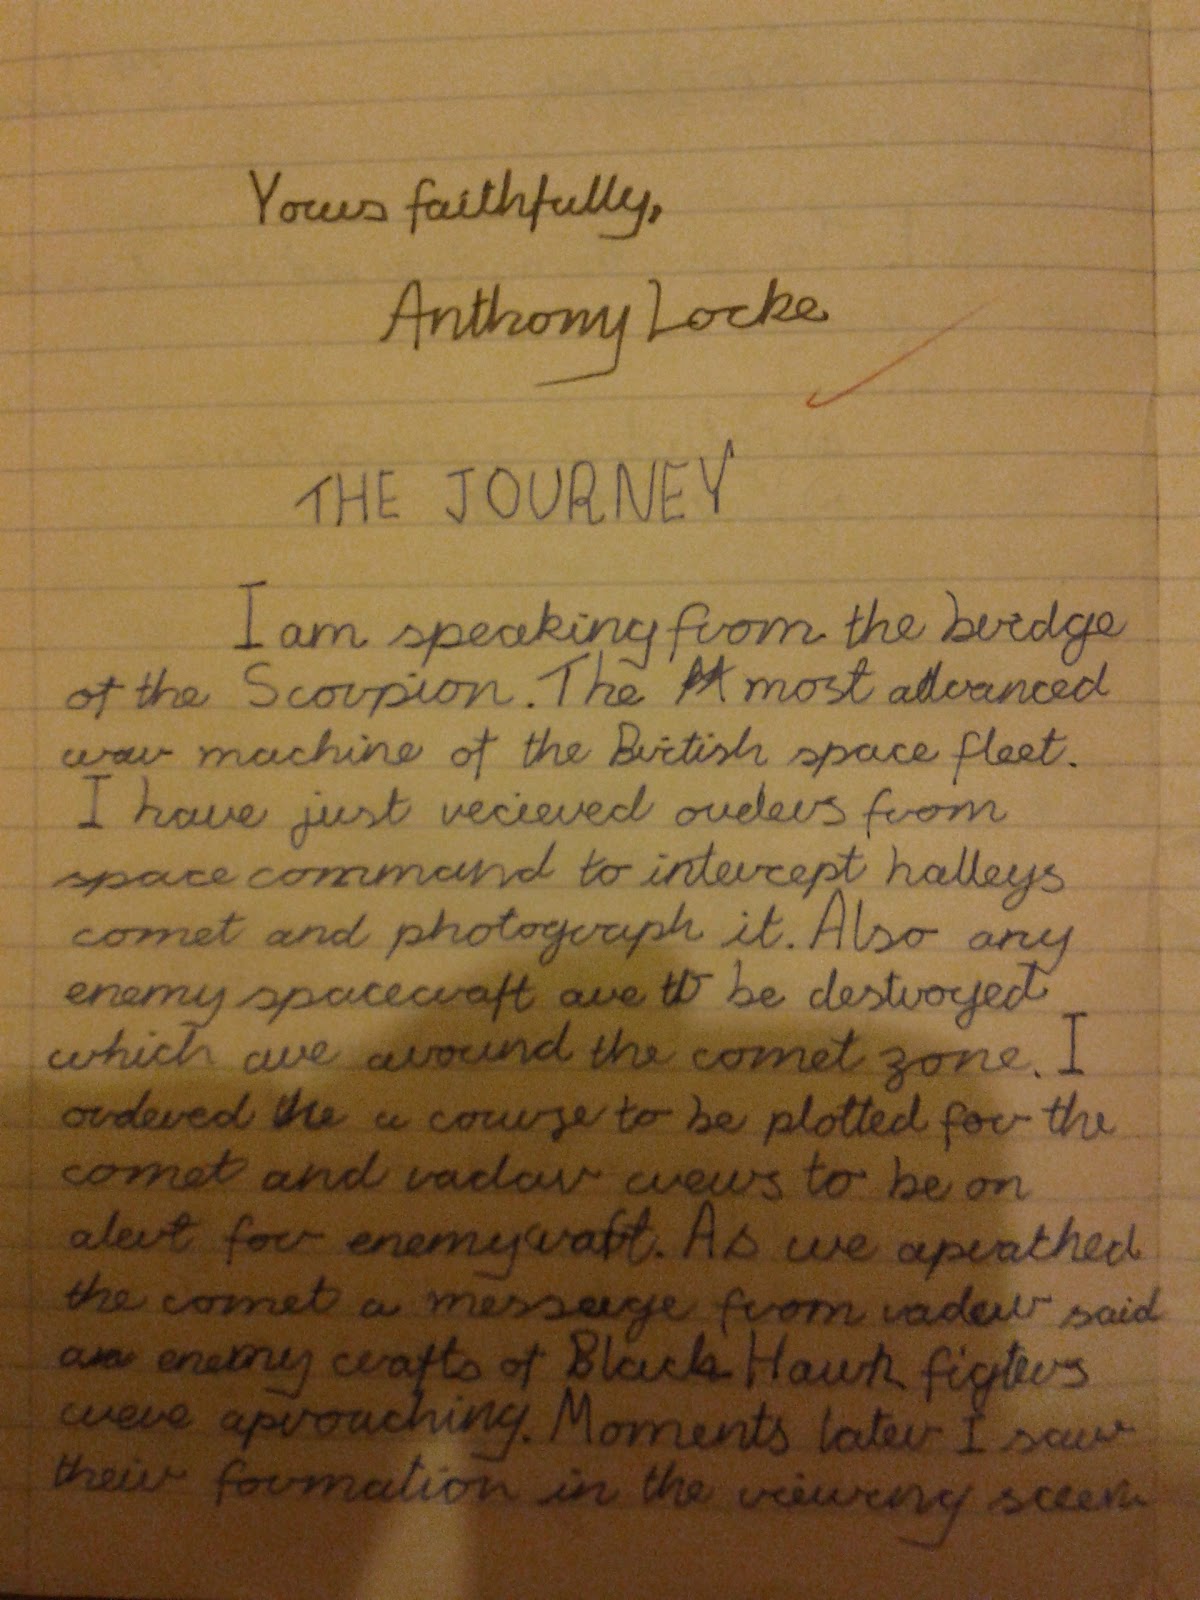 Yours faithfully,
Anthony Locke
THE JOURNEY
I am speaking from the birdge
of the Scorpion. The most advanced
war machine of the Birtish space fleet.
I have just recieved orders from
space command to intercept halleys
comet and photograph it. Also any
enemy spacecraft are to be destroyed
which are around the comet zone. I
ordered a course to be plotted for the
comet and radar crews to be on
alert for enemycraft. As we aprathed
the comet a message from radar said
an enemy crafts of Black Hawk figters
were aproaching. Moments later I saw
their formation in the viewing sceen